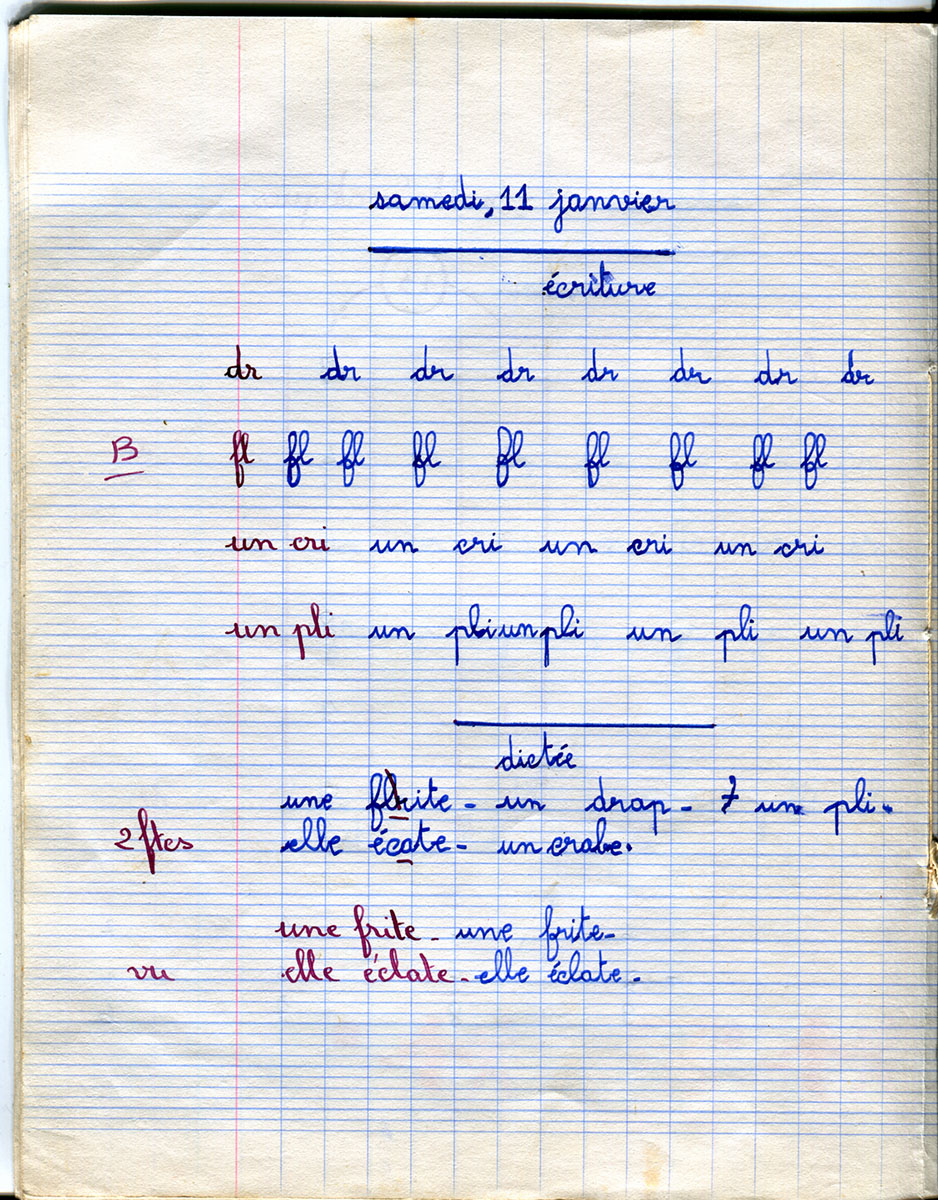 samedi, 11 janvier
écriture
dr dr dr dr dr dr dr dr
B fl fl fl fl fl fl fl fl fl
un cri un cri un cri un cri
un pli un pli un pli un pli un pli
dictée
une frite - un drap - un pli.
2 ftes elle écate - un crabe.
une frite - une frite -
vu elle éclate - elle éclate.